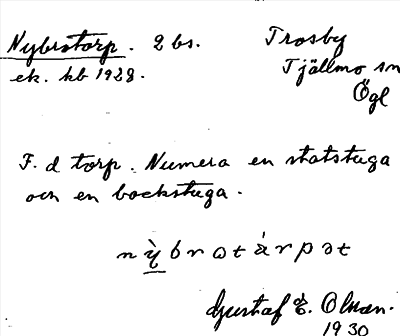 Nybrotorp. 2 bs. Trosby
ek. kb 1928. Tjällmo sn
Ögl
F. d torp. Numera en statstuga
och en backstuga.
Gustaf E. Olsson.
1930